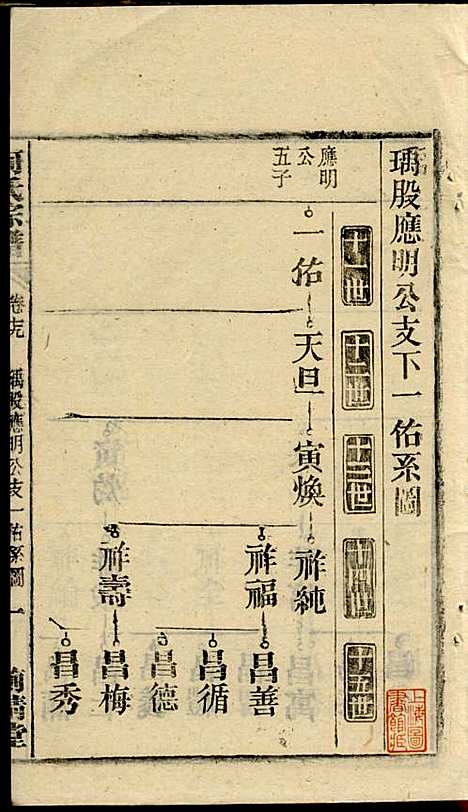 瑀股應明公支下一佑系圖
十一世
十二世
十三世
十四世
十五世
應明
公
五子
一佑
天旦
寅煥
祥純
祥福
祥壽
昌善
昌循
昌德
昌梅
昌秀
氏宗譜
瑀股應明公支一佑系圖
一
清堂
上海圖
書館藏